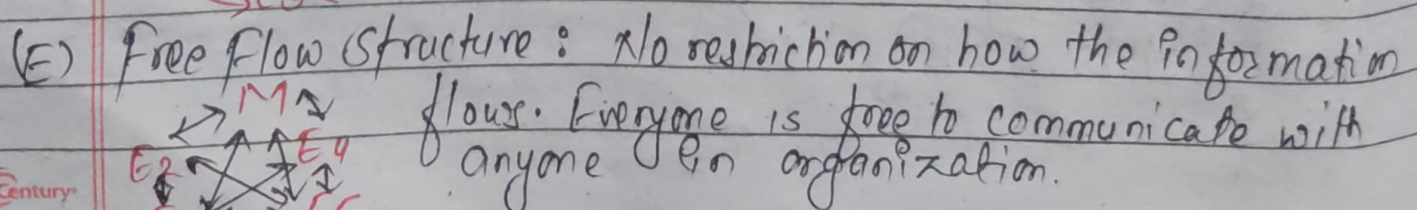 (E) Free Flow Structure : No restriction on how the information
flows. Everyone is free to communicate with
anyone in organization.
M
E2
E4
Century